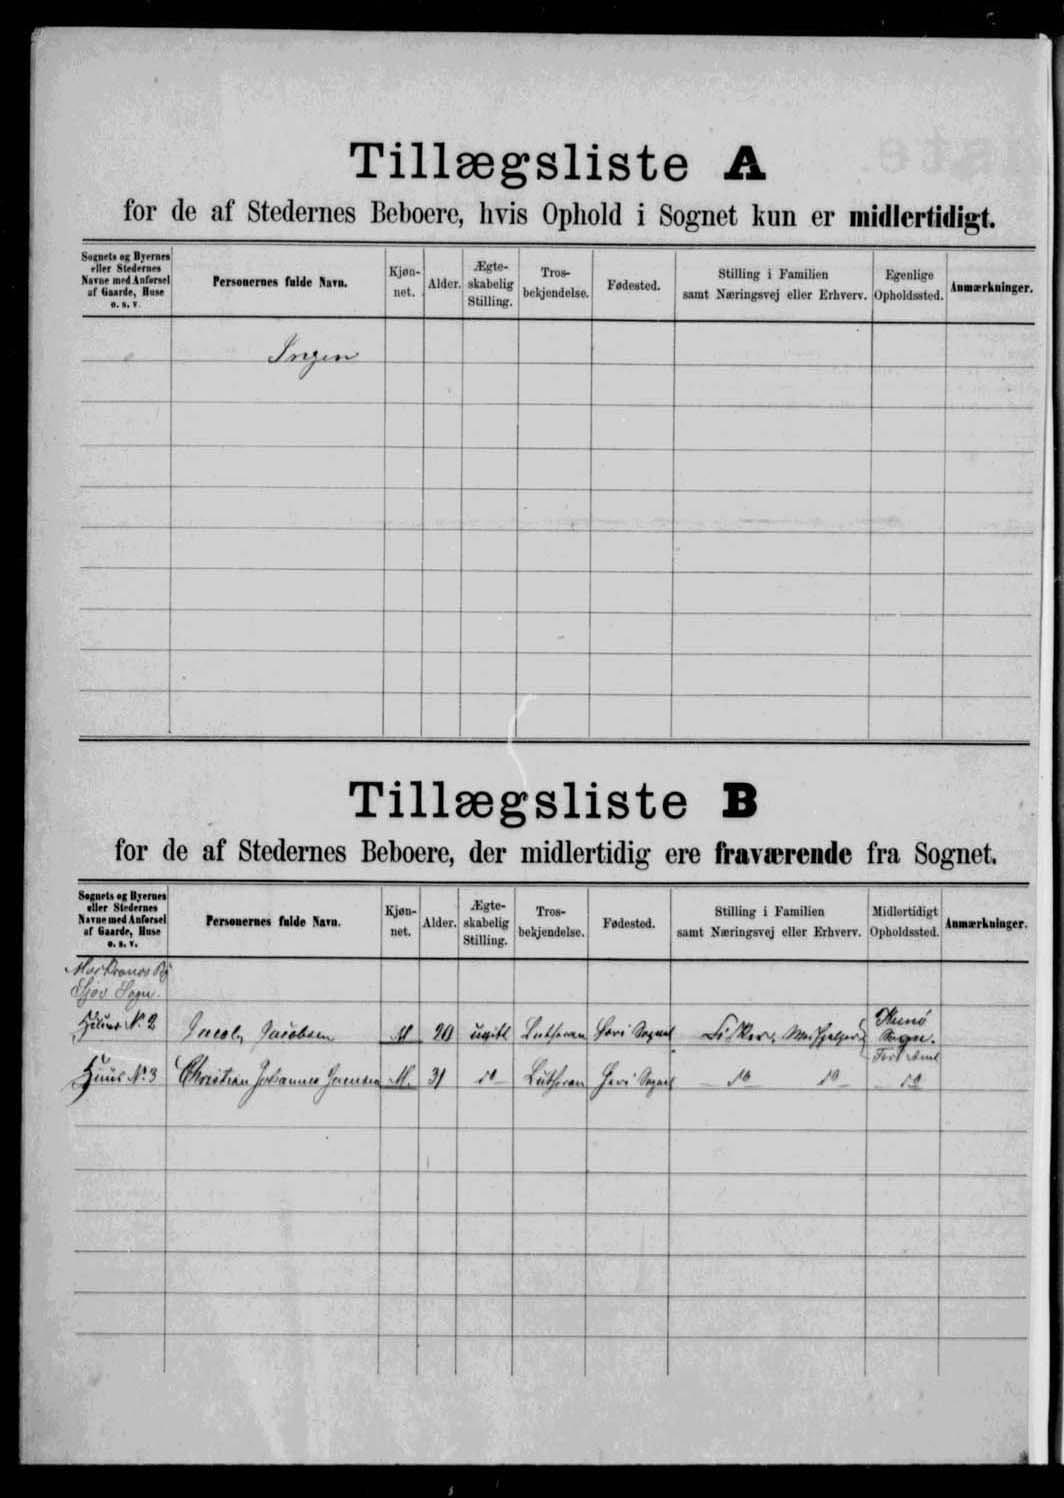 Tillægsliste A
for de af Stedernes Beboere, hvis Ophold i Sognet kun er midlertidigt.
Sognets og Byernes eller Stedernes Navne med Anførsel af Gaarde, Huse o. s. v.
Personernes fulde Navn.
Kjøn-
net.
Alder.
Ægte-
skabelig
Stilling.
Tros-
bekjendelse.
Fødested.
Stilling i Familien
samt Næringsvej eller Erhverv.
Egenlige
Opholdssted.
Anmærkninger.
Ingen
Tillægsliste B
for de af Stedernes Beboere, der midlertidig ere fraværende fra Sognet.
Sognets og Byernes
eller Stedernes
Navne med Anførsel
af Gaarde, Huse
o. s. v.
Personernes fulde Navn.
Kjøn-
net.
Alder.
Ægte-
skabelig
Stilling.
Tros-
bekjendelse.
Fødested.
Stilling i Familien
samt Næringsvej eller Erhverv.
Midlertidigt
Opholdssted.
Anmærkninger.
Sogn.
Huus No. 2 Jacob Jacobsen M 20 ugift Lutheran Sognet Fisker, Kunø Sogn.
Huus No. 3 Christian Johannes M. 31 do Lutheran Sognet do do do